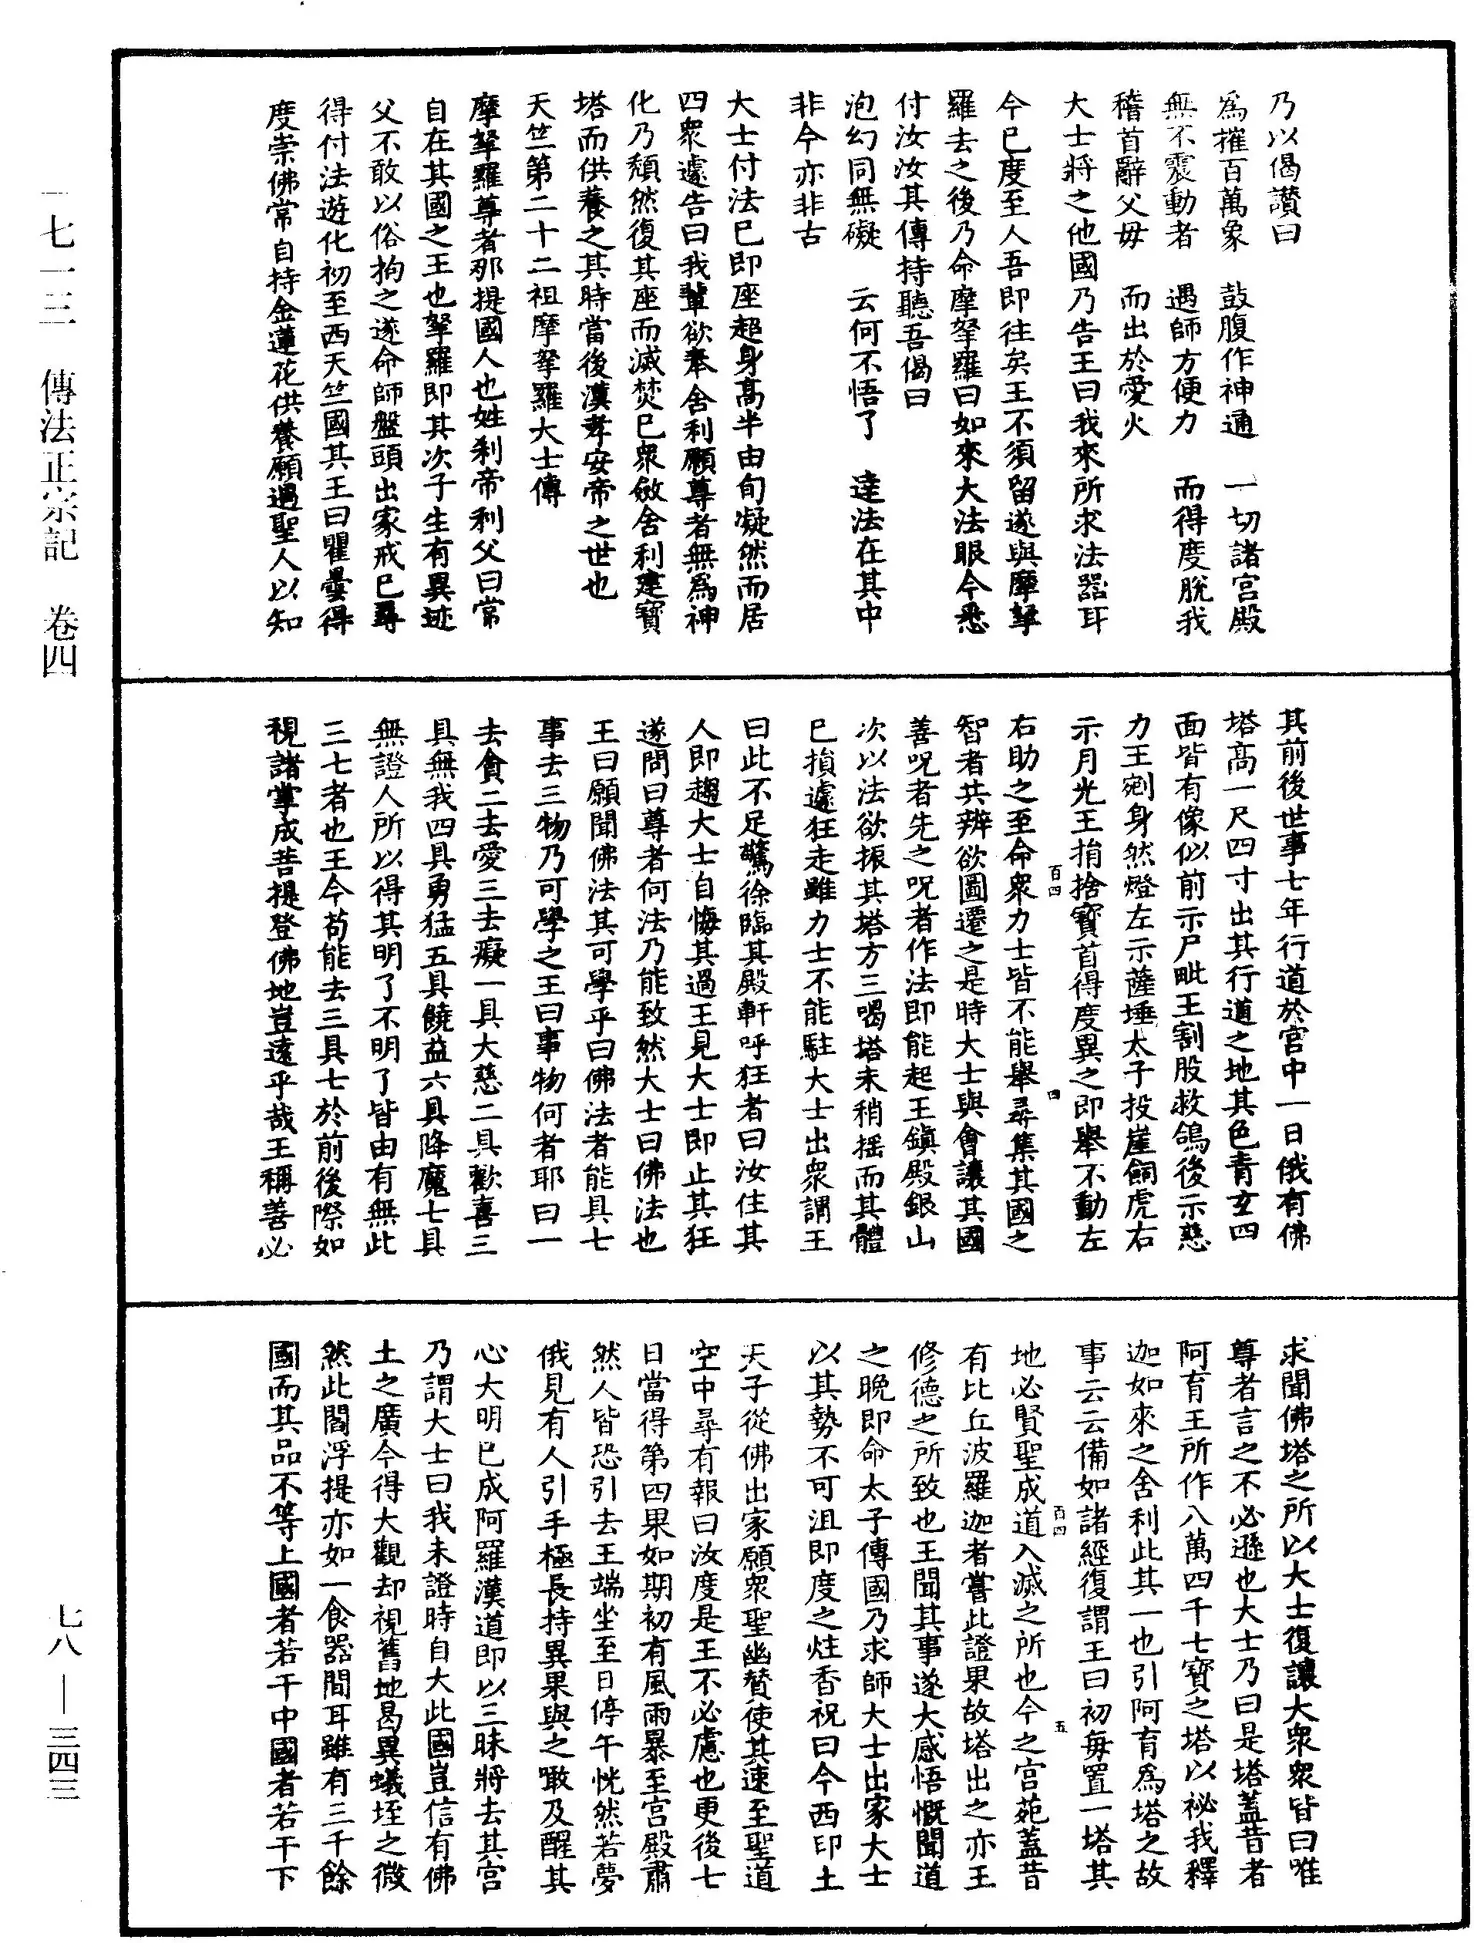 乃以偈讚曰
為摧百萬象　鼓腹作神通　一切諸宮殿
無不震動者　遇師方便力　而得度脫我
稽首辭父母　而出於愛火
大士將之他國乃告王曰我來所求法器耳
今已度至人吾即往矣王不須留遂與摩拏
羅去之後乃命摩拏羅曰如來大法眼今悉
付汝汝其傳持聽吾偈曰
泡幻同無礙　云何不悟了　達法在其中
非今亦非古
大士付法已即座超身高半由旬凝然而居
四眾遽告曰我輩欲奉舍利願尊者無為神
化乃頹然復其座而滅焚已眾斂舍利建寶
塔而供養之其時當後漢孝安帝之世也
天竺第二十二祖摩拏羅大士傳
摩拏羅尊者那提國人也姓剎帝利父曰常
自在其國之王也拏羅即其次子生有異迹
父不敢以俗拘之遂命師盤頭出家戒已尋
得付法遊化初至西天竺國其王曰瞿曇得
度崇佛常自持金蓮花供養願遇聖人以知
其前後世事七年行道於宮中一日俄有佛
塔高一尺四寸出其行道之地其色青玄四
面皆有像似前示尸毗王割股救鴿後示慈
力王剜身然燈左示薩埵太子投崖飼虎右
示月光王捐捨寶首得度異之即舉不動左
右助之至命眾力士皆不能舉尋集其國之
智者共辨欲圖遷之是時大士與會讓其國
善呪者先之呪者作法即能起王鎮殿銀山
次以法欲振其塔方三喝塔未稍搖而其體
已損遽狂走雖力士不能駐大士出眾謂王
曰此不足驚徐臨其殿軒呼狂者曰汝住其
人即趨大士自悔其過王見大士即止其狂
遂問曰尊者何法乃能致然大士曰佛法也
王曰願聞佛法其可學乎曰佛法者能具七
事去三物乃可學之王曰事物何者耶曰一
去貪二去愛三去癡一具大慈二具歡喜三
具無我四具勇猛五具饒益六具降魔七具
無證人所以得其明了不明了皆由有無此
三七者也王今苟能去三具七於前後際如
視諸掌成菩提登佛地豈遠乎哉王稱善必
求聞佛塔之所以大士復讓大眾眾皆曰唯
尊者言之不必遜也大士乃曰是塔蓋昔者
阿育王所作八萬四千七寶之塔以祕我釋
迦如來之舍利此其一也引阿育為塔之故
事云云備如諸經復謂王曰初每置一塔其
地必賢聖成道入滅之所也今之宮苑蓋昔
有比丘波羅迦者嘗此證果故塔出之亦王
修德之所致也王聞其事遂大感悟慨聞道
之晚即命太子傳國乃求師大士出家大士
以其勢不可沮即度之炷香祝曰今西印土
天子從佛出家願眾聖幽贊使其速至聖道
空中尋有報曰汝度是王不必慮也更後七
日當得第四果如期初有風雨暴至宮殿肅
然人皆恐引去王端坐至日停午恍然若夢
俄見有人引手極長持異果與之噉及醒其
心大明已成阿羅漢道即以三昧將去其宮
乃謂大士曰我未證時自大此國豈信有佛
土之廣今得大觀却視舊地曷異蟻垤之微
然此閻浮提亦如一食器間耳雖有三千餘
國而其品不等上國者若干中國者若干下
百四
四
百四
五
一七一三　傳法正宗記　卷四
七八—三四三